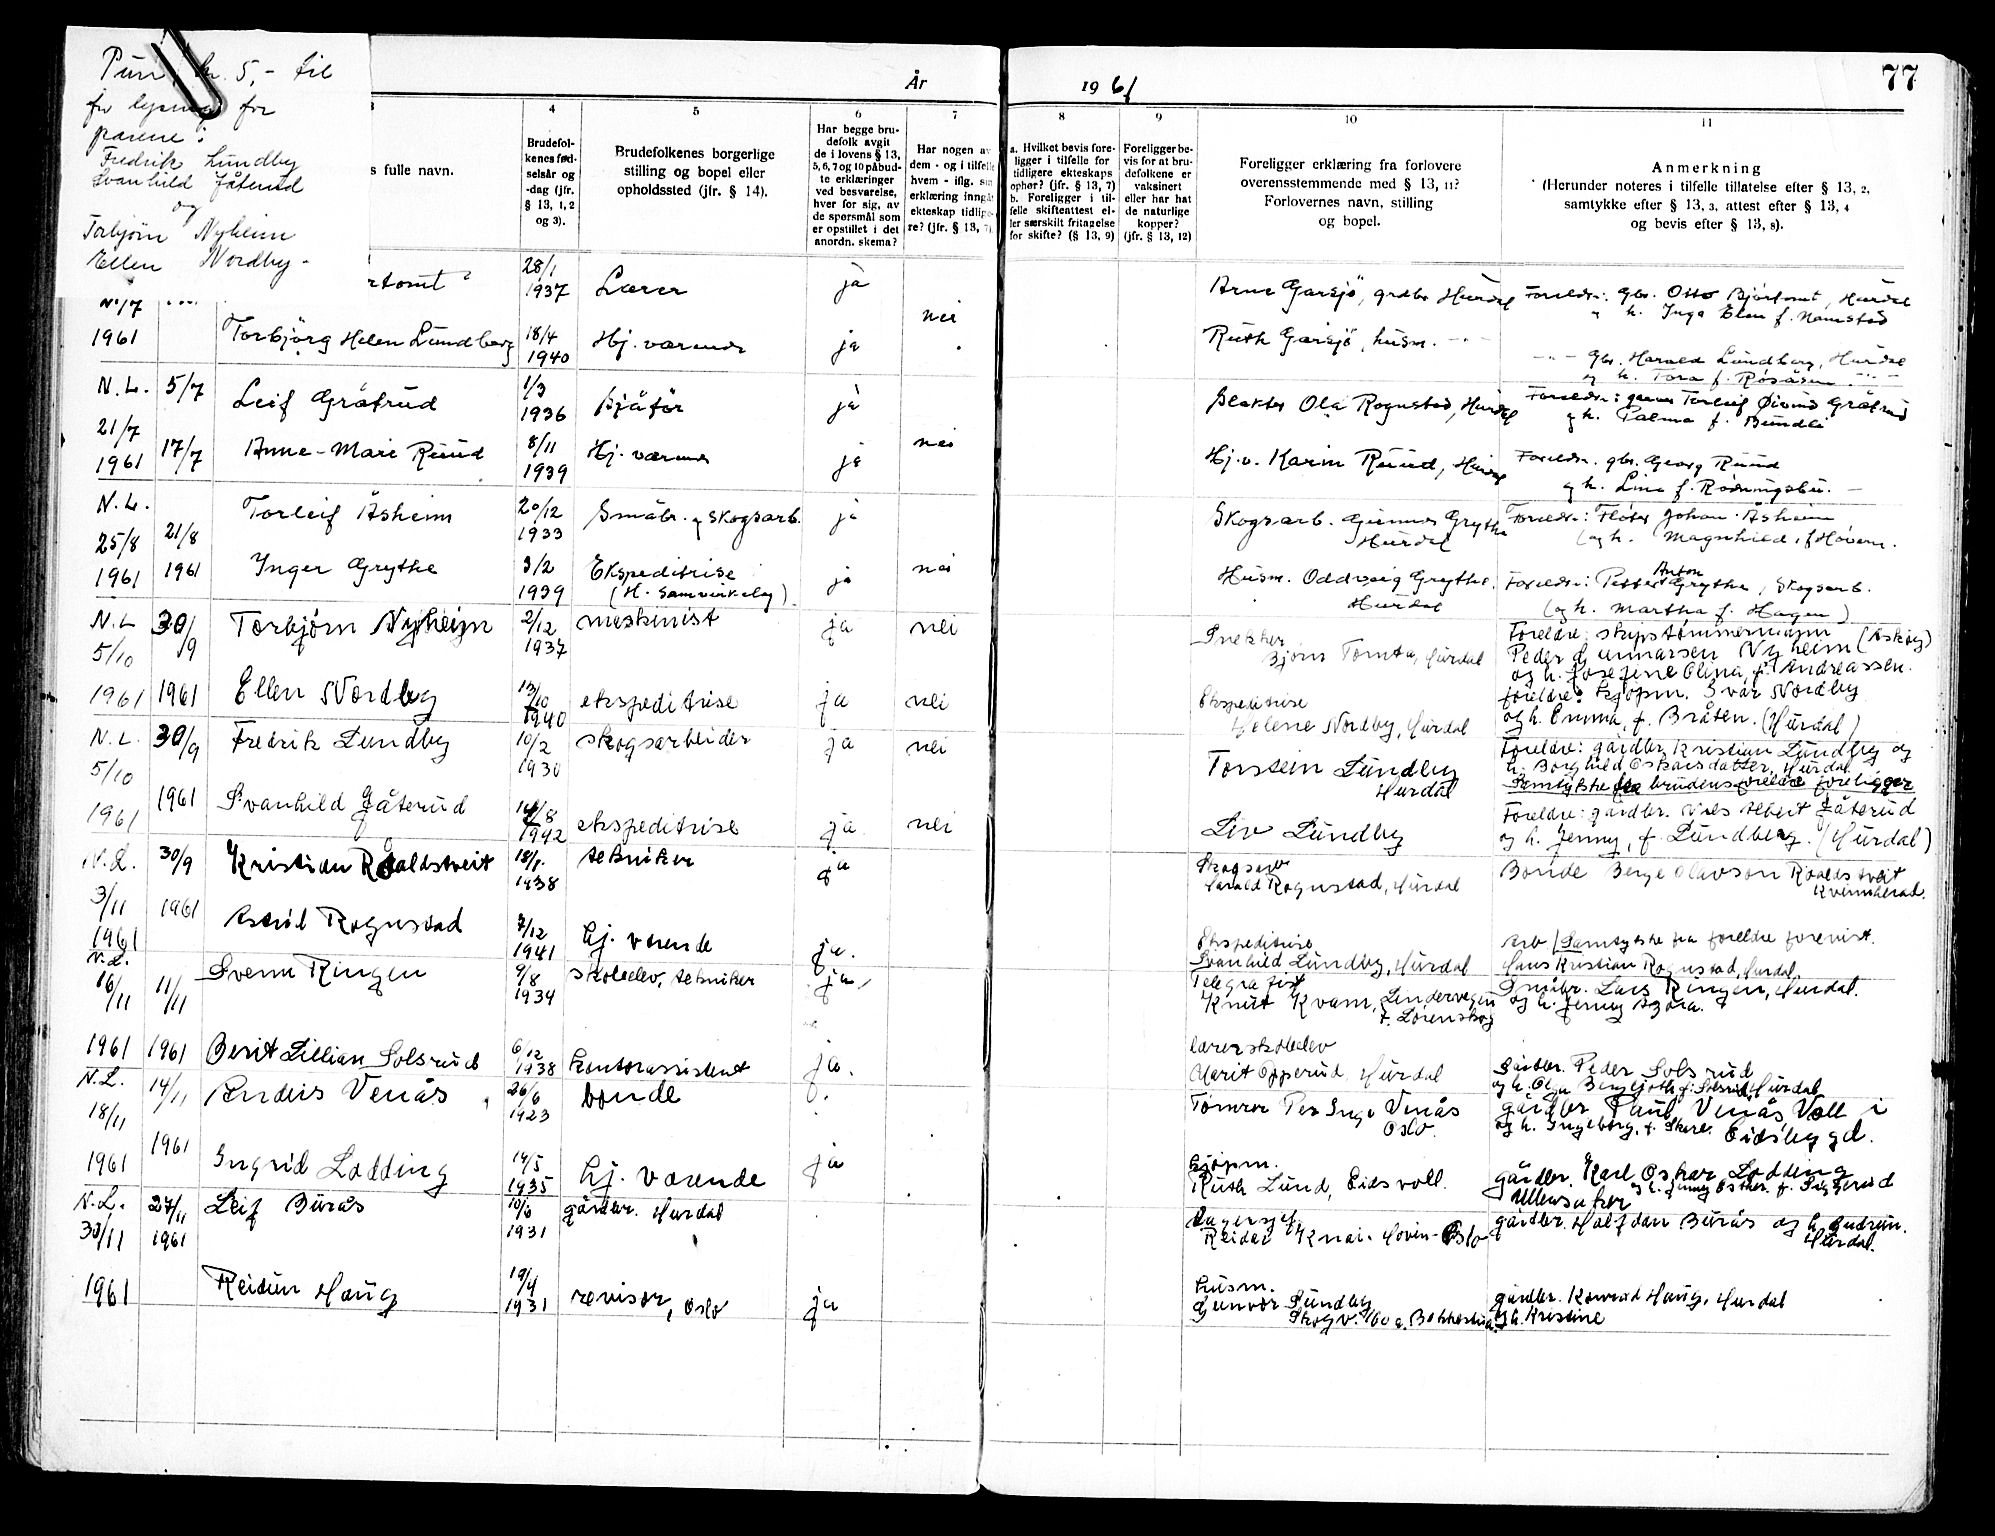 kr. 5,- til
for lysning for
parene:
Fredrik Lundby
Svanhild Jåterud
og
Torbjørn Nyheim
Ellen Nordby.
År
19 61
77
3
4
5
6
7
8
9
10
11
s fulle navn.
Brudefol-
kenes fød-
selsår og
-dag (jfr.
§ 13, 1, 2
og 3).
Brudefolkenes borgerlige
stilling og bopel eller
opholdssted (jfr. § 14).
Har begge bru-
defolk avgit
de i lovens § 13,
5, 6, 7 og 10 påbud-
te erklæringer
ved besvarelse,
hver for sig, av
de spørsmål som
er opstillet i det
anordn. skema?
Har nogen av
dem - og i tilfelle
hvem - iflg. sin
erklæring inngå
ekteskap tidlige-
re? (jfr. § 13, 7)
a. Hvilket bevis fore-
ligger i tilfelle for
tidligere ekteskaps
ophør? (jfr. § 13, 7)
b. Foreligger i til-
felle skifteattest el-
ler særskilt fritagelse
for skifte? (§ 13, 9)
Foreligger be-
vis for at bru-
defolkene er
vaksinert
eller har hat
de naturlige
kopper?
(jfr. § 13, 12)
Foreligger erklæring fra forlovere
overensstemmende med § 13, 11?
Forlovernes navn, stilling
og bopel.
Anmerkning
(Herunder noteres i tilfelle tillatelse efter § 13, 2,
samtykke efter § 13, 3, attest efter § 13, 4
og bevis efter § 13, 8).
rtomt
28/1
1937
Lærer
ja
Arne Garsjø, grdbr. Hurdal
Foreldre: gbr. Otto Bjørtomt, Hurdal
og h. Inga Elen f. Namstad
1961
Torbjørg Helen Lundberg
18/4
1940
Hj. værende
ja
nei
Ruth Garsjø, husm. - " -
- " - gbr. Harald Lundberg, Hurdal
og h. Tora f. Røsåsen - " -
N. L.
5/7
Leif Gråtrud
1/3
1936
Sjåfør
ja
Slakter Ola Rognstad, Hurdal
Foreldre: Torleif Øivind Gråtrud
og h. Palma f. Bundli
21/7
1961
17/7
Anne-Mari Ruud
8/11
1939
Hj. værende
ja
nei
Hj.v. Karin Ruud, Hurdal
Foreldre: gbr. Georg Ruud
og h. Lina f. Rødningsbu.
N. L.
25/8
1961
21/8
1961
Torleif Åsheim
20/12
1933
Småbr. og Skogsarb.
ja
Skogsarb. Gunnar Grythe
Hurdal
Foreldre: Fløter Johan Åsheim
(og h. Magnhild, f Høvern.
Inger Grythe
3/2
1939
Ekspeditrise
(H. Samvirkelag)
ja
nei
Husm. Oddveig Grythe
Hurdal
Foreldre: Petter Anton Grythe, Skogsarb.
(og h. Martha f. Hagen)
N. L
5/10
1961
30/9
1961
Torbjørn Nyheim
2/12
1937
maskinist
ja
nei
Snekker
Bjørn Tomta, Hurdal
Foreldre: skipstømmermann (Askøy)
Peder Gunnarsen Nyheim
og h. Josefine Olina, f. Andreassen.
Ellen Nordby
13/10
1940
ekspeditrise
ja
nei
Ekspeditrise
Helene Nordby, Hurdal
foreldre: kjøpm. Ivar Nordby
og h. Emma, f. Bråten. (Hurdal)
N. L.
5/10
1961
30/9
1961
Fredrik Lundby
10/2
1930
skogsarbeider
ja
nei
Torstein Lundby
Hurdal
Foreldre: gårdbr. Kristian Lundby og
h. Borghild Oskarsdatter, Hurdal
Samtykke fra brudens foreldre foreligger
Svanhild Jåterud
14/8
1942
ekspeditrise
ja
nei
Liv Lundby
Foreldre: gårdbr. Nils Albert Jåterud
og h. Jenny, f. Lundberg. (Hurdal)
N. L.
3/11
1961
30/9
1961
Kristian Roaldstveit
18/1
1938
tekniker
ja
Skogsarb
Harald Rognstad, Hurdal
Bonde Berge Olavson Roaldstveit
Kvinnherad.
Astrid Rognstad
7/12
1941
hj. værende
ja.
Ekspeditrise
Svanhild Lundby, Hurdal
Arb / Samtykke fra foreldre forevist.
Hans Kristian Rognstad, Hurdal.
N. L.
16/11
1961
11/11
1961
Svenn Ringen
9/8
1934
skoleelev, tekniker
ja,
Telegrafist
Knut Kvam, Lindervegen
Lørenskog
Småbr. Lars Ringen, Hurdal.
og h. Jenny Azora.
Berit Lillian Solsrud
6/12
1938
kontorassistent
ja.
lærerskoleelev
Marit Opperud, Hurdal
Gårdbr. Peder Solsrud
og h. Olga Bergljoth, f: Solsrud, Hurdal
N. L.
18/11
1961
14/11
1961
Anders Venås
26/6
1923
bonde
Tømrer Per Inge Venås
Oslo.
gårdbr Paul Venås, Vøll i
og h. Ingeborg, f. Eidsbygd.
Ingrid Lodding
14/5
1935
hj. værende
ja
kjøpm.
Ruth Lund, Eidsvoll.
gårdbr. Karl Oskar Lodding
og h. Jenny Esther. f. Siggerud
Ullensaker
N. L.
30/11
1961
27/11
1961
Leif Burås
10/6
1931
gårdbr. Hurdal
Lagersjef
Reidar Knai - Hovin - Oslo
gårdbr. Halfdan Burås og h. Gudrun.
Hurdal.
Reidun Haug
19/4
1931
revisor, Oslo
ja
husm.
Gunvor Lundby
Skogv. 160 a. Bekkestua.
gårdbr. Konrad Haug, Hurdal
og h. Kristine